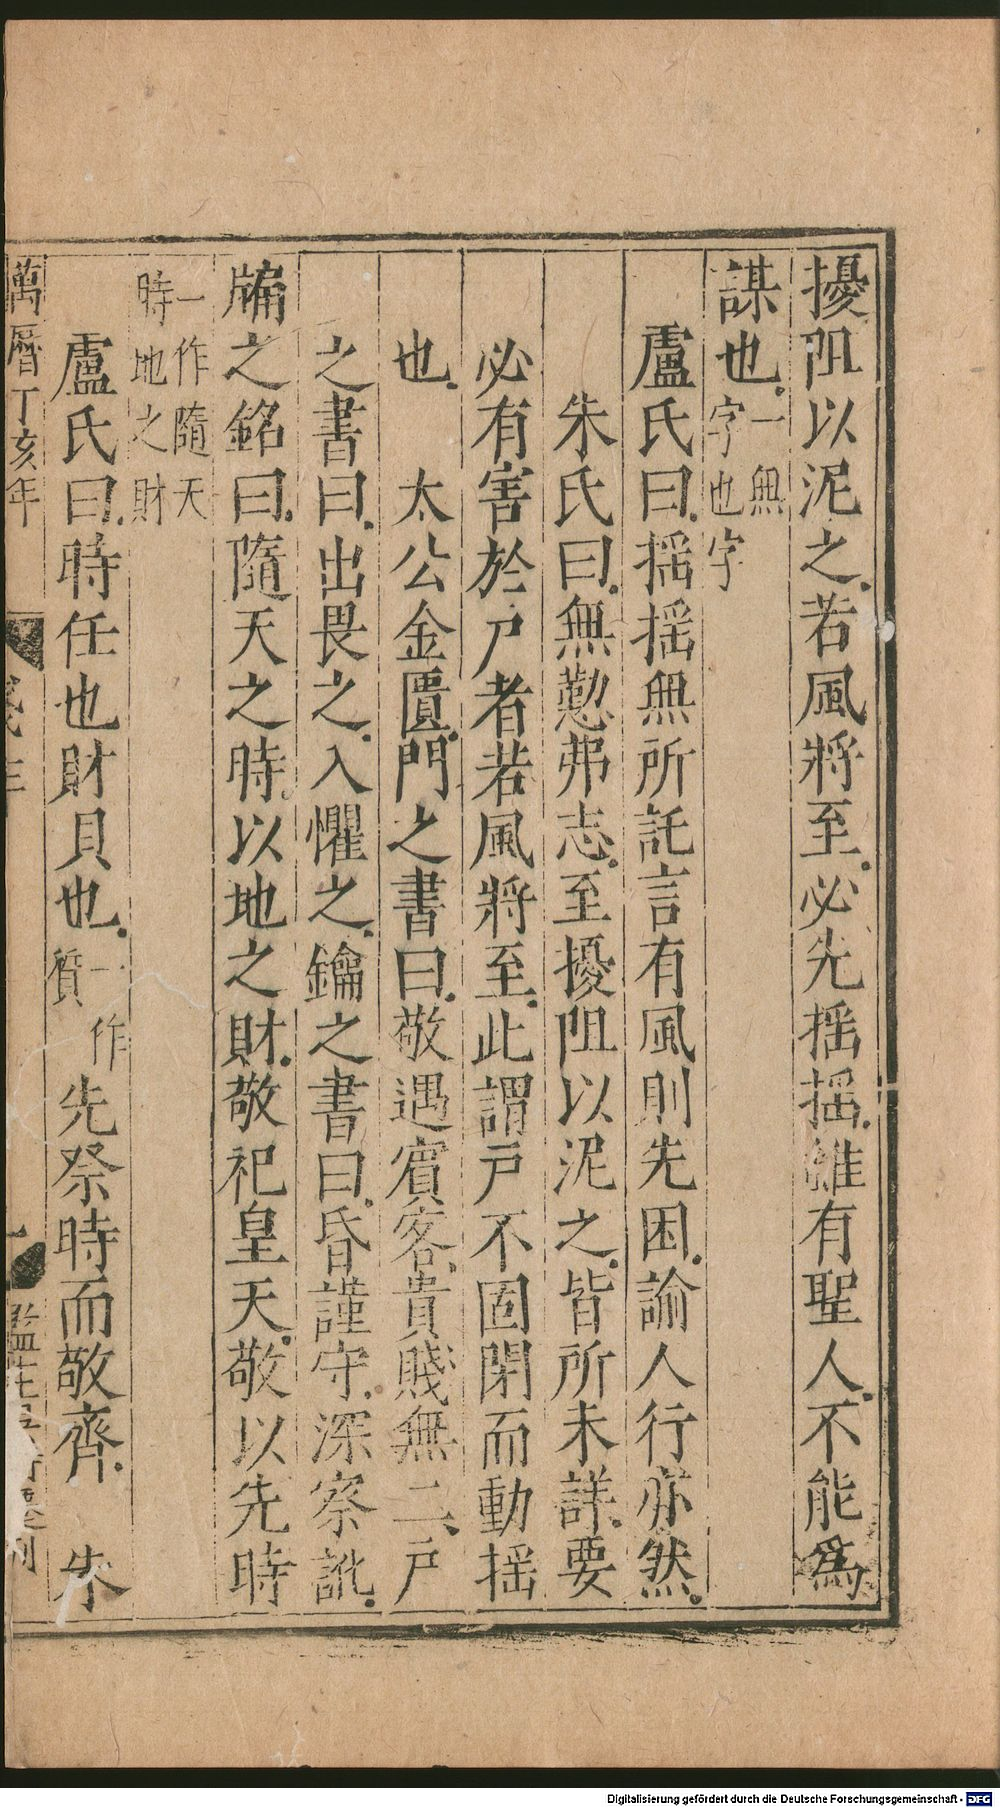 擾阻以泥之若風將至必先揺揺雖有聖人不能爲
謀也一無字也字
盧氏曰揺揺無所託言有風則先困諭人行亦然
朱氏曰無懃弗志至擾阻以泥之皆所未詳要
必有害於戸者若風將至此謂戸不固閉而動揺
也 太公金匱門之書曰敬遇賓客貴賤無二戸
之書曰出畏之入懼之鑰之書曰昏謹守深察訛
牖之銘曰隨天之時以地之財敬祀皇天敬以先時
一作隨天時地之財
盧氏曰時任也財貝也一作質先祭時而敬齊 朱
萬曆丁亥年
Digitalisierung gefördert durch die Deutsche Forschungsgemeinschaft - DFG